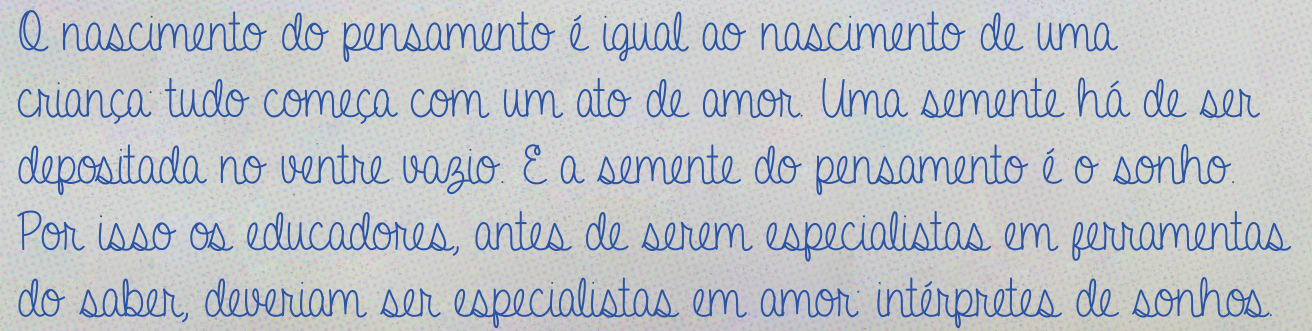 O nascimento do pensamento é igual ao nascimento de uma
criança: tudo começa com um ato de amor. Uma semente há de ser
depositada no ventre vazio. E a semente do pensamento é o sonho.
Por isso os educadores, antes de serem especialistas em ferramentas
do saber, deveriam ser especialistas em amor: intérpretes de sonhos.